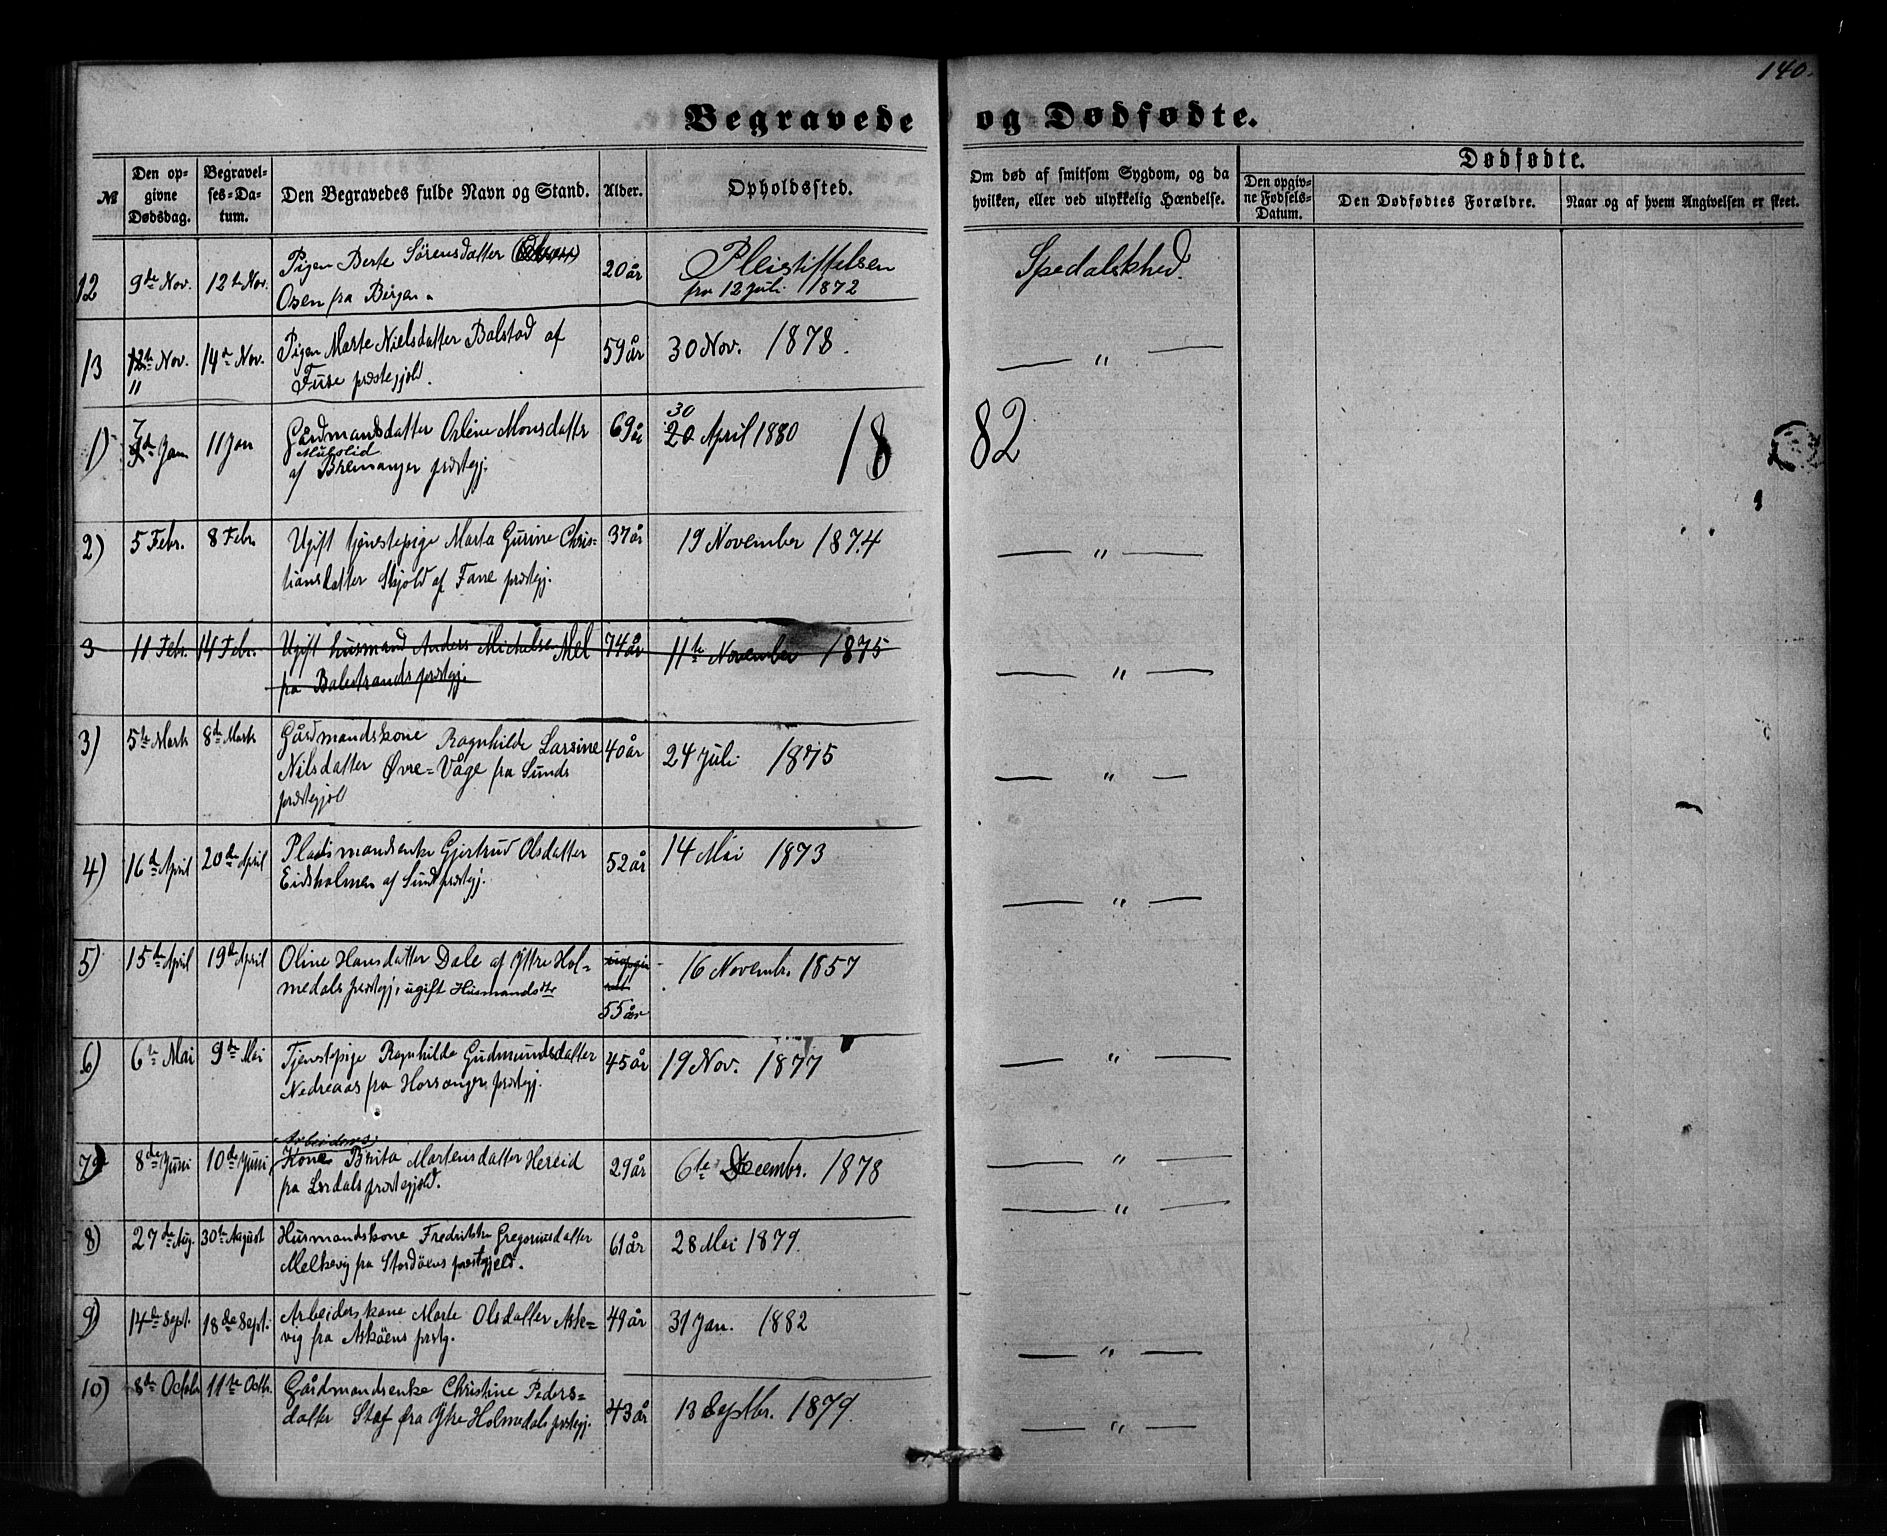 140.
Begravede og Dødfødte.
№
Den op-
givne
Dødsdag.
Begravel-
ses-Da-
tum.
Den Begravedes fulde Navn og Stand.
Alder.
Opholdssted.
Om død af smitsom Sygdom, og da
hvilken, eller ved ulykkelig Hændelse.
Dødfødte.
Den opgiv-
ne Fødsels-
Datum.
Den Dødfødtes Forældre.
Naar og af hvem Angivelsen er skeet.
12 9de Nov. 12te Nov. Pigen Berte Sörensdatter 20 år Pleistiftelsen Spedalskhed.
Osen fra Bergen. fra 12 Juli 1872
13 12te Nov. 14de Nov. Pigen Marte Nielsdatter Balstad af 59 år 30 Nov. 1878. — " —
11 Fuse præstegjeld.
1882
7
1) 9de Jan 11 Jan Gårdmandsdatter Orline Monsdatter 69 år 30 20 April 1880
af Bremanger præstegj.
2) 5 Febr. 8 Febr. Ugift tjenstepige Marta Gurine Chris- 37 år 19 November 1874 — " —
tiansdatter Skjold af Fane præstegj.
3 11 Febr. 14 Febr. Ugift husmand Anders Michelsen Mel 74 år 11te November 1875 — " —
fra Balestrands præstegj.
3) 5te Marts 8de Marts Gårdmandskone Ragnhilde Larsine 40 år 24 Juli 1875 — " —
Nilsdatter Øvre-Våge fra Sunds
præstegjel
4) 16de April 20de April Pladsmandsenke Gjertrud Olsdatter 52 år 14 Mai 1873 — " —
Eidsholmen af Sund præstegj.
5) 15de April 19de April Oline Hansdatter Dale af Yttre Hol- 16 Novembr. 1857
medals præstegj, ugift Husmandsdtr 55 år
6) 6te Mai 9de Mai Tjenstepige Ragnhilda Gudmundsdatter 45 år 19 Nov. 1877 — " —
Nedreaas fra Hosanger præstegj.
Arbeiders
7 8de Juni 10de Juni Kone Brita Martensdatter Hereid 29 år 6te Decembr. 1878 — " —
fra Lerdals præstegjeld.
8) 27de Aug. 30te August Husmandskone Fredrikke Gregoriusdatter 61 år 28 Mai 1879. — " —
Melkevig fra Stordöens præstegjeld.
9) 14de Sept. 18de Sept. Arbeiderskone Marte Olsdatter Aske- 49 år 31 Jan. 1882 — " —
vig fra Asköens præstg.
10) 8de Octob 11te Octb. Gårdmandsenke Christine Peders- 43 år 13 Septbr. 1879. — " —
datter Staf fra Ytre Holmedals præstegj.